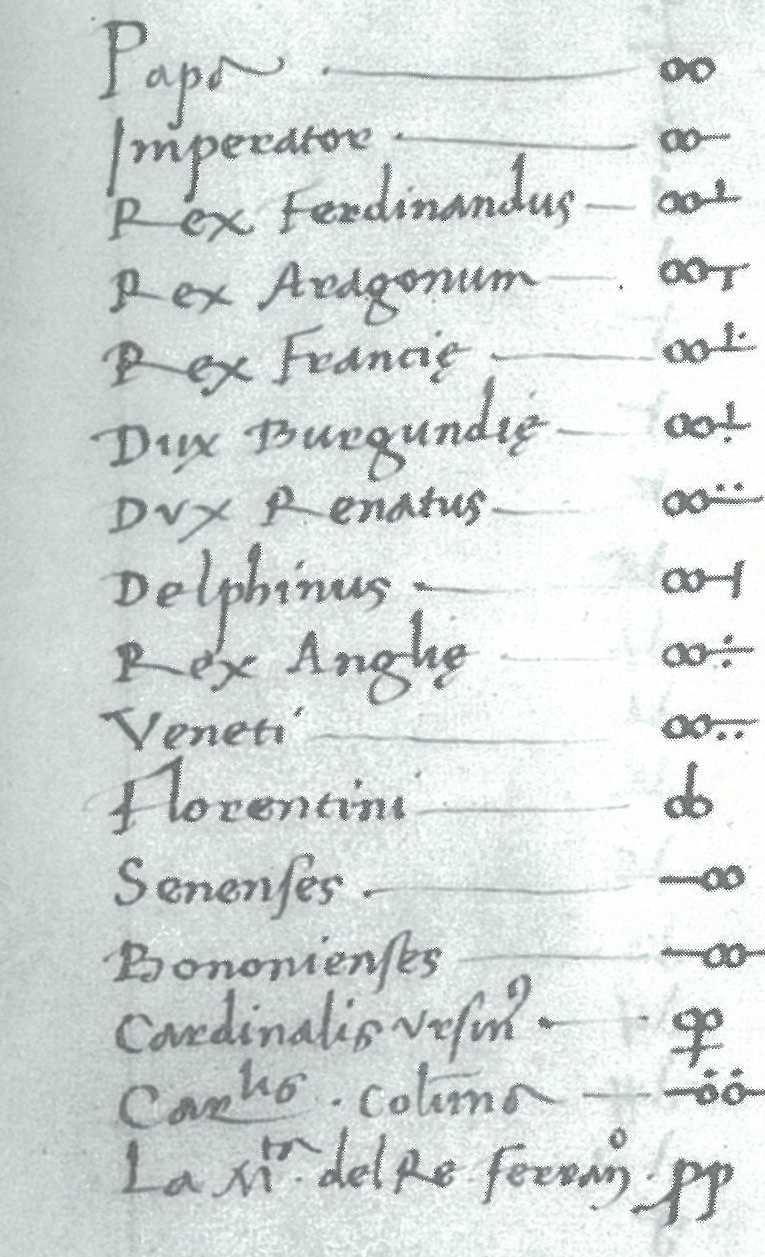 Papa
Imperator
Rex Ferdinandus
Rex Aragonum
Rex Francię
Dux Burgundię
Dvx Renatus
Delphinus
Rex Anglię
Veneti
Florentini
Senenſes
Bononienſes
Cardinalis Vrſinꝰ
Carlis . Colūna
La Mtà. del Re ferranº. pp